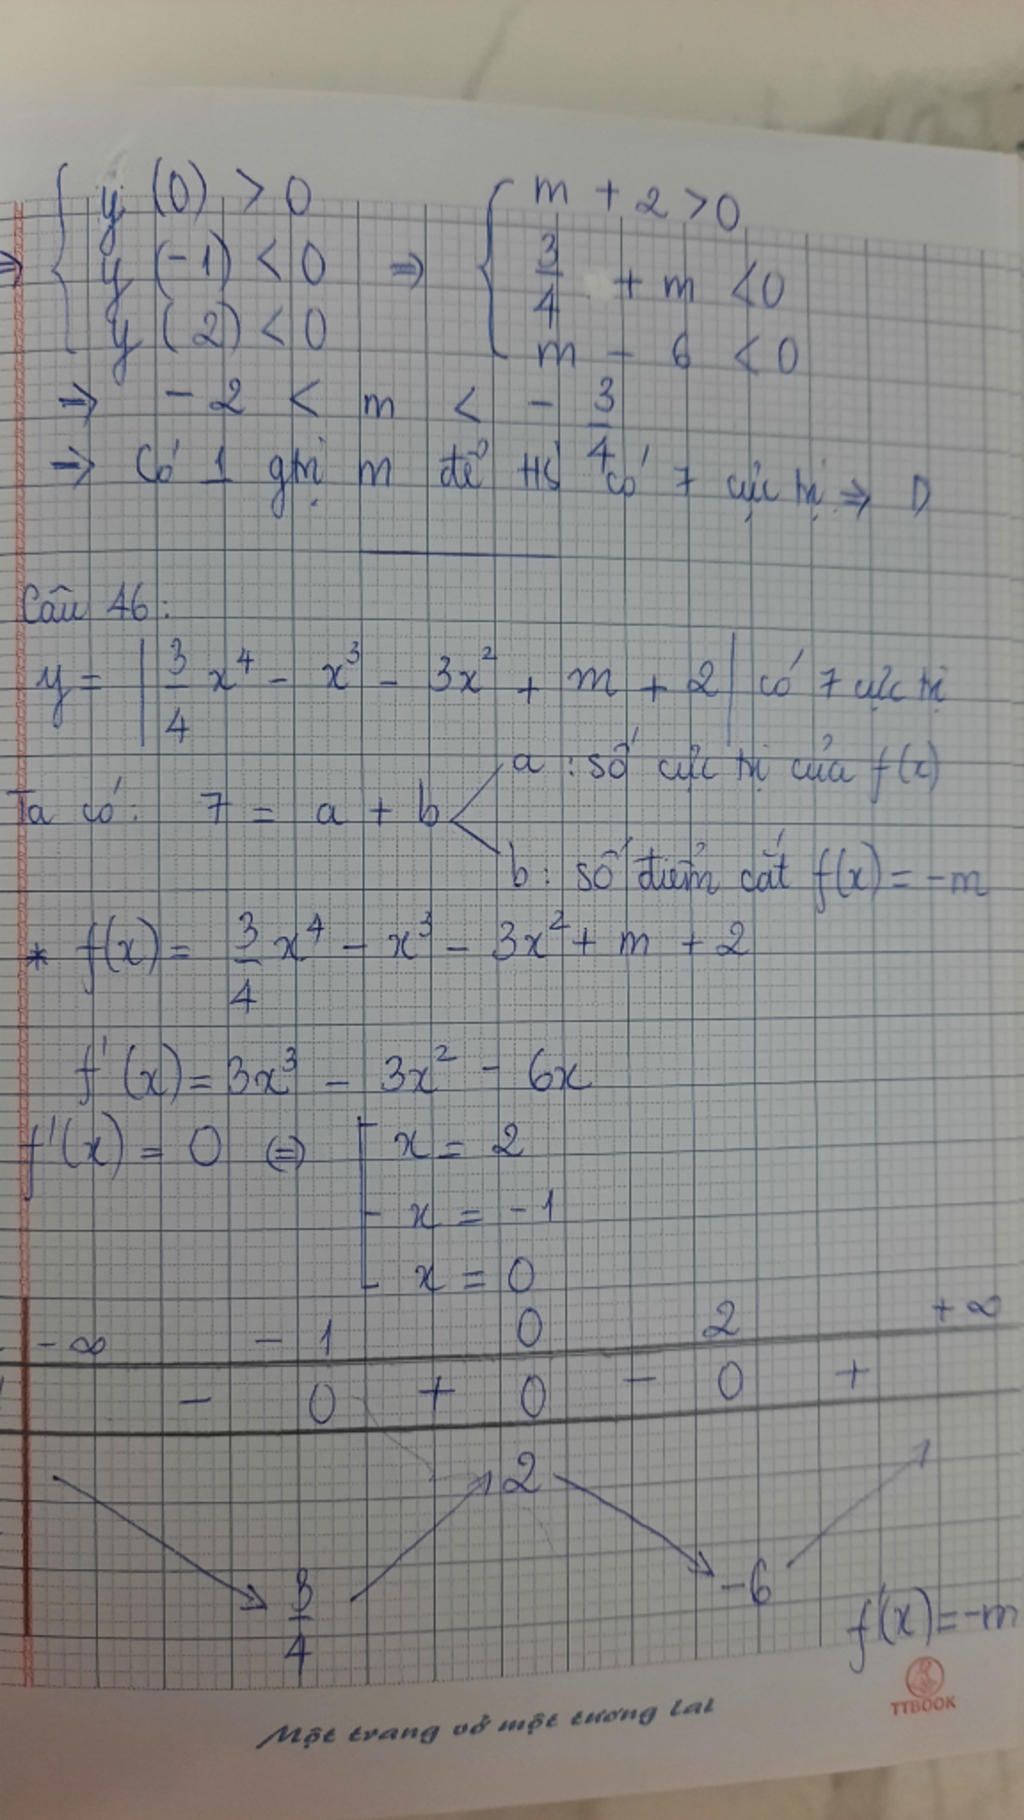 { y (0) > 0 ⇒ { m + 2 > 0
⇒ { y (-1) < 0 { 3/4 + m < 0
{ y (2) < 0 { m - 6 < 0
⇒ - 2 < m < - 3/4
⇒ Có 1 gtrị m để HS có 7 cực trị ⇒ D
Câu 46:
y = | 3/4 x⁴ - x³ - 3x² + m + 2 | có 7 cực trị
Ta có: 7 = a + b
a : số cực trị của f(x)
b : số điểm cắt f(x) = -m
* f(x) = 3/4 x⁴ - x³ - 3x² + m + 2
f'(x) = 3x³ - 3x² - 6x
f'(x) = 0 ⇔ [ x = 2
[ x = -1
[ x = 0
-∞ -1 0 2 +∞
- 0 + 0 - 0 +
2
3/4 -6
f(x) = -m
TTBOOK
Một trang vở một tương lai